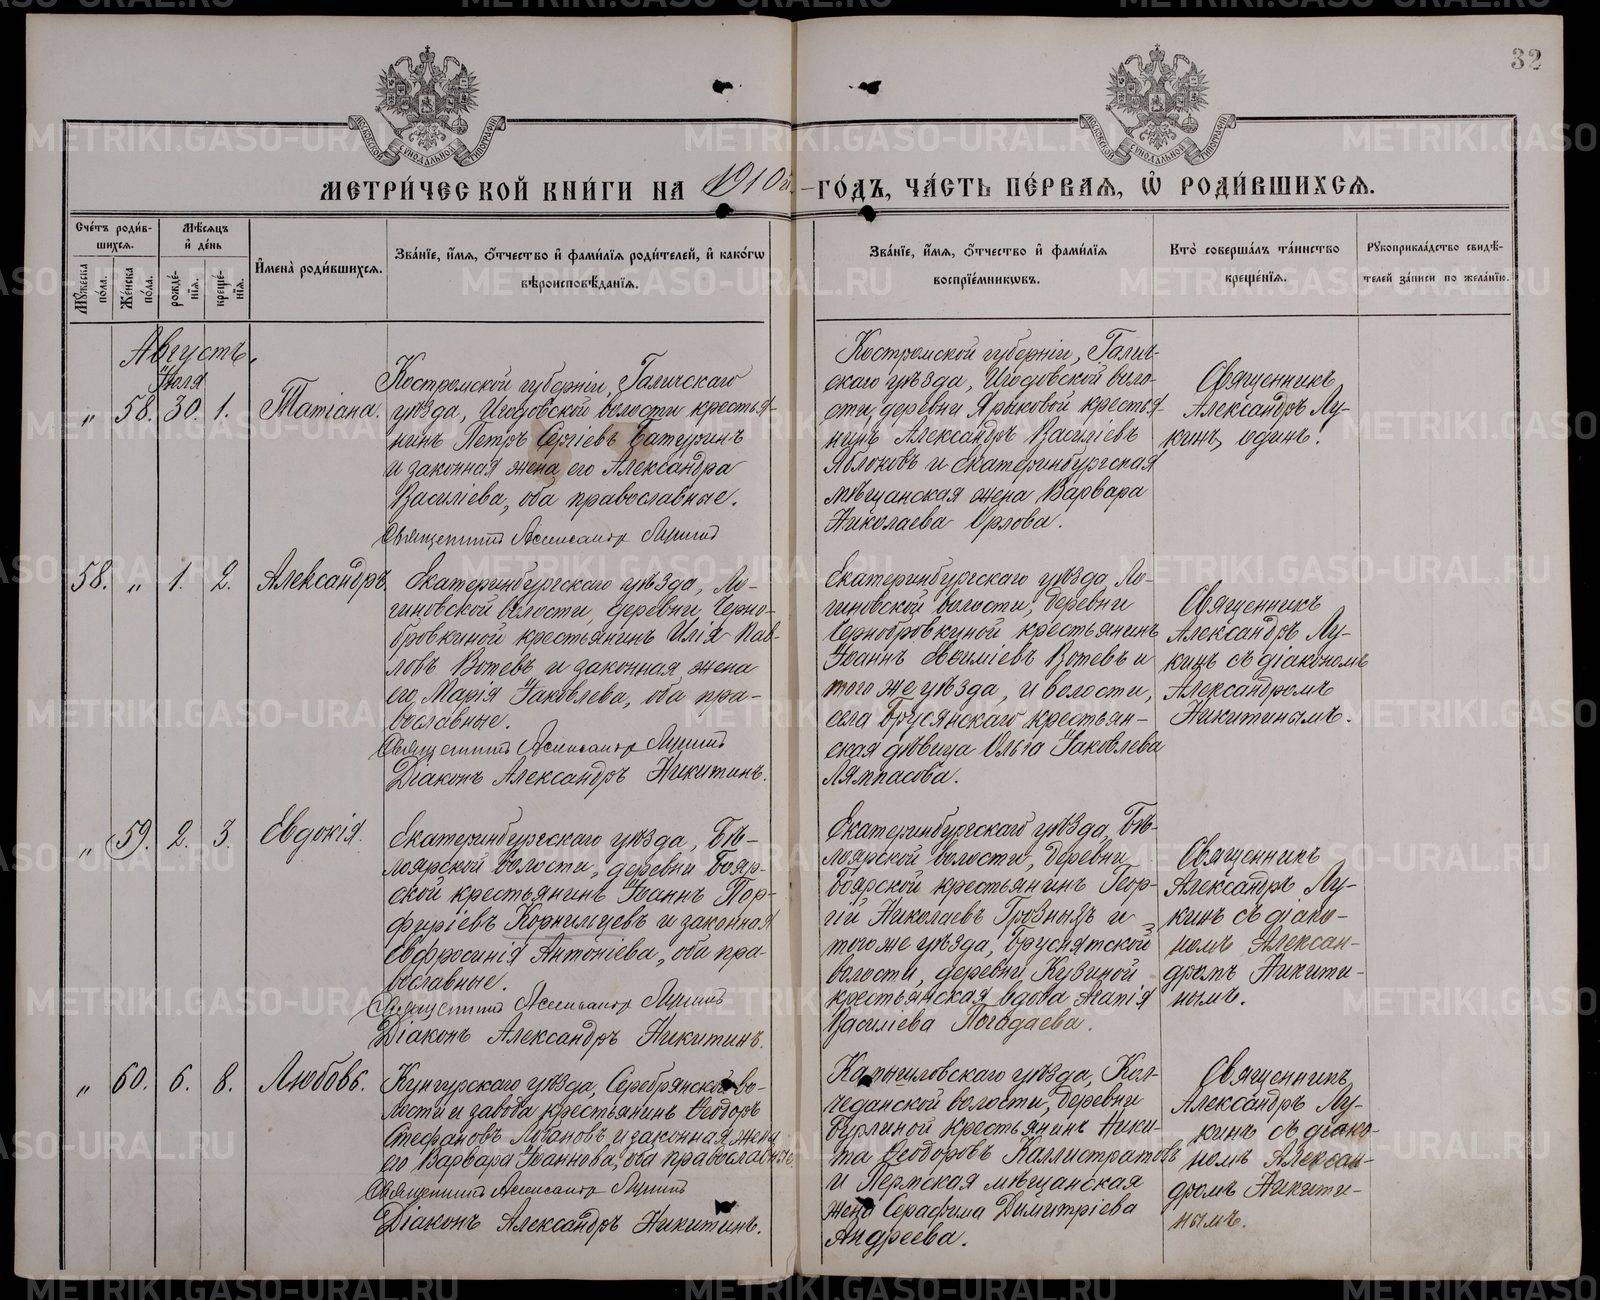 32
МЕТРИ́ЧЕСКОЙ КНИ́ГИ НА 1910й – ГО́ДЪ, ЧА́СТЬ ПЕ́РВАѦ, Ѡ҆ РОДИ́ВШИХСѦ.
Сче́тъ роди́в-
шихсѧ.
Мꙋ́жеска пола.
Же́нска по́ла.
Мѣ́сѧцъ
и҆ де́нь
рожде́-
нїѧ.
креще́-
нїѧ.
И҆мена̀ роди́вшихсѧ.
Зва́нїе, и҆́мѧ, ѻ҆́тчество и҆ фами́лїѧ роди́телей, и҆ како́гѡ
вѣроисповѣ́данїѧ.
Зва́нїе, и҆́мѧ, ѻ҆́тчество и҆ фами́лїѧ
воспрїе́мникѡвъ.
Кто̀ соверша́лъ та́инство
креще́нїѧ.
Рꙋкоприкла́дство свидѣ́-
телей за́писи по жела́нїю.
Августъ.
Іюля
„ 58. 30. 1.
Татіана.
Костромской губерніи, Галичскаго
уѣзда, Игодовской волости крестья-
нинъ Петръ Сергіевъ Батуринъ
и законная жена его Александра
Василіева, оба православные.
Священникъ Александръ Лукинъ
Костромской губерніи, Галич-
скаго уѣзда, Игодовской воло-
сти, деревни Ярыковой крестья-
нинъ Александръ Василіевъ
Яблоковъ и екатеринбургская
мѣщанская жена Варвара
Николаева Орлова.
Священникъ
Александръ Лу-
кинъ, одинъ.
58. „ 1. 2.
Александръ.
Екатеринбургскаго уѣзда, Ло-
гиновской волости, деревни Черно-
бровкиной крестьянинъ Илія Пав-
ловъ Вотевъ и законная жена
его Марія Іаковлева, оба пра-
вославные.
Священникъ Александръ Лукинъ
Діаконъ Александръ Никитинъ.
Екатеринбургскаго уѣзда, Ло-
гиновской волости, деревни
Чернобровкиной крестьянинъ
Іоаннъ Василіевъ Вотевъ и
того же уѣзда, и волости,
села Брусянскаго крестьян-
ская дѣвица Ольга Іаковлева
Лямпасова.
Священникъ
Александръ Лу-
кинъ съ діакономъ
Александромъ
Никитинымъ.
„ 59. 2. 3.
Евдокія.
Екатеринбургскаго уѣзда, Бѣ-
лоярской волости, деревни Бояр-
ской крестьянинъ Іоаннъ Пор-
фиріевъ Корнильцевъ и законная
Евфросинія Антоніева, оба пра-
вославные.
Священникъ Александръ Лукинъ
Діаконъ Александръ Никитинъ.
Екатеринбургскаго уѣзда, Бѣ-
лоярской волости, деревни
Боярской крестьянинъ Геор-
гій Николаевъ Грозныхъ и
того же уѣзда, Бруснятской
волости, деревни Кузиной
крестьянская вдова Марія
Василіева Погадаева.
Священникъ
Александръ Лу-
кинъ съ діако-
номъ Алексан-
дромъ Никити-
нымъ.
„ 60. 6. 8.
Любовь.
Кунгурскаго уѣзда, Серебрянской во-
лости и завода крестьянинъ Ѳеодоръ
Стефановъ Лобановъ и законная жена
его Варвара Іоаннова, оба православные.
Священникъ Александръ Лукинъ
Діаконъ Александръ Никитинъ.
Камышловскаго уѣзда, Кол-
чеданской волости, деревни
Бурлиной крестьянинъ Ники-
та Ѳеодоровъ Каллистратовъ
и Пермская мѣщанская
жена Серафима Димитріева
Андреева.
Священникъ
Александръ Лу-
кинъ съ діако-
номъ Алексан-
дромъ Никити-
нымъ.